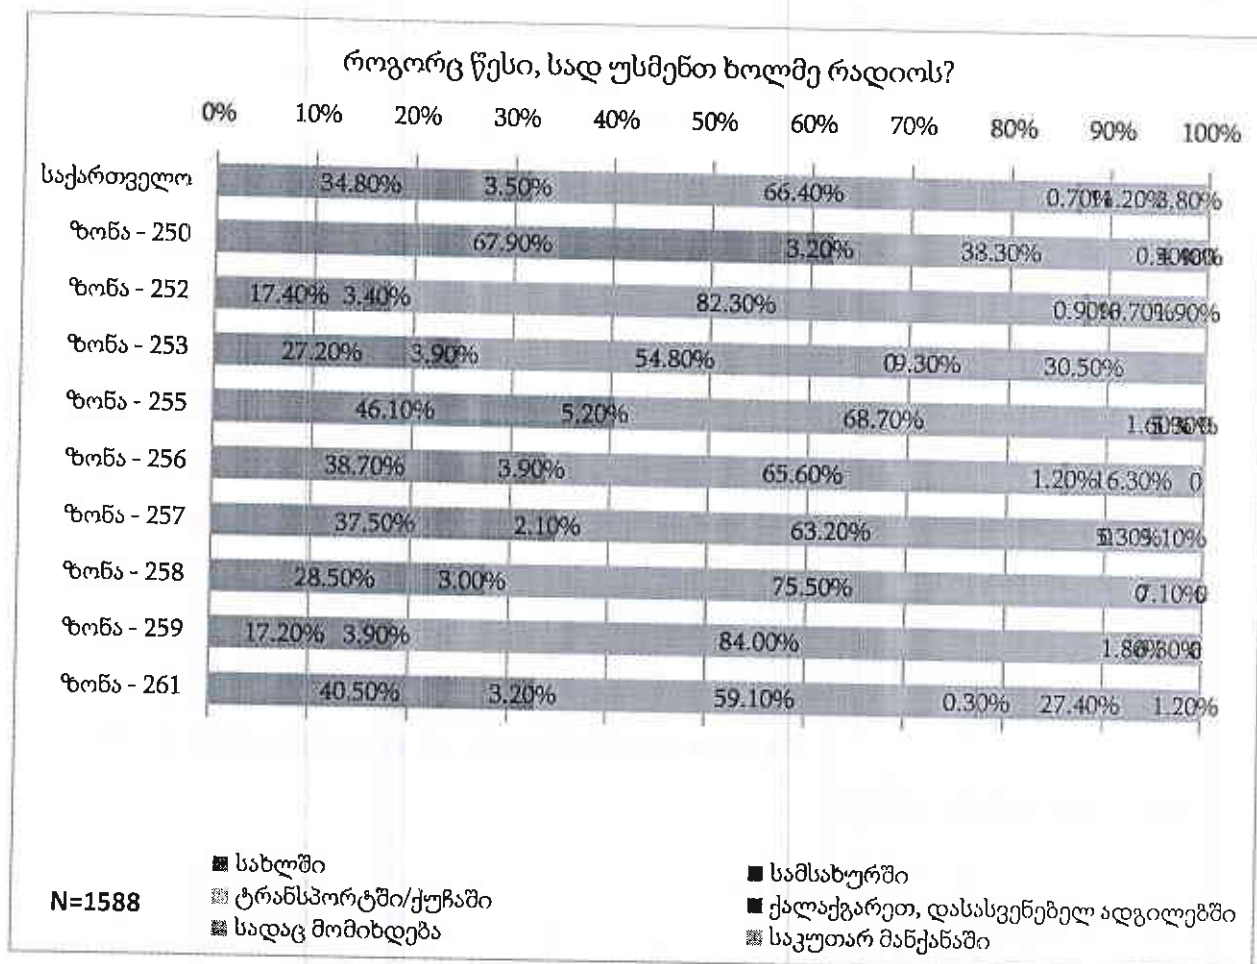 როგორც წესი, სად უსმენთ ხოლმე რადიოს?
0% 10% 20% 30% 40% 50% 60% 70% 80% 90% 100%
საქართველო 34.80% 3.50% 66.40% 0.70%
ზონა - 250 67.90% 3.20% 38.30%
ზონა - 252 17.40% 3.40% 82.30% 0.90%
ზონა - 253 27.20% 3.90% 54.80% 30.50%
ზონა - 255 46.10% 5.20% 68.70%
ზონა - 256 38.70% 3.90% 65.60% 1.20% 16.30% 0
ზონა - 257 37.50% 2.10% 63.20%
ზონა - 258 28.50% 3.00% 75.50% 7.10%
ზონა - 259 17.20% 3.90% 84.00%
ზონა - 261 40.50% 3.20% 59.10% 0.30% 27.40% 1.20%
სახლში სამსახურში
N=1588 ტრანსპორტში/ქუჩაში ქალაქგარეთ, დასასვენებელ ადგილებში
სადაც მომიხდება საკუთარ მანქანაში